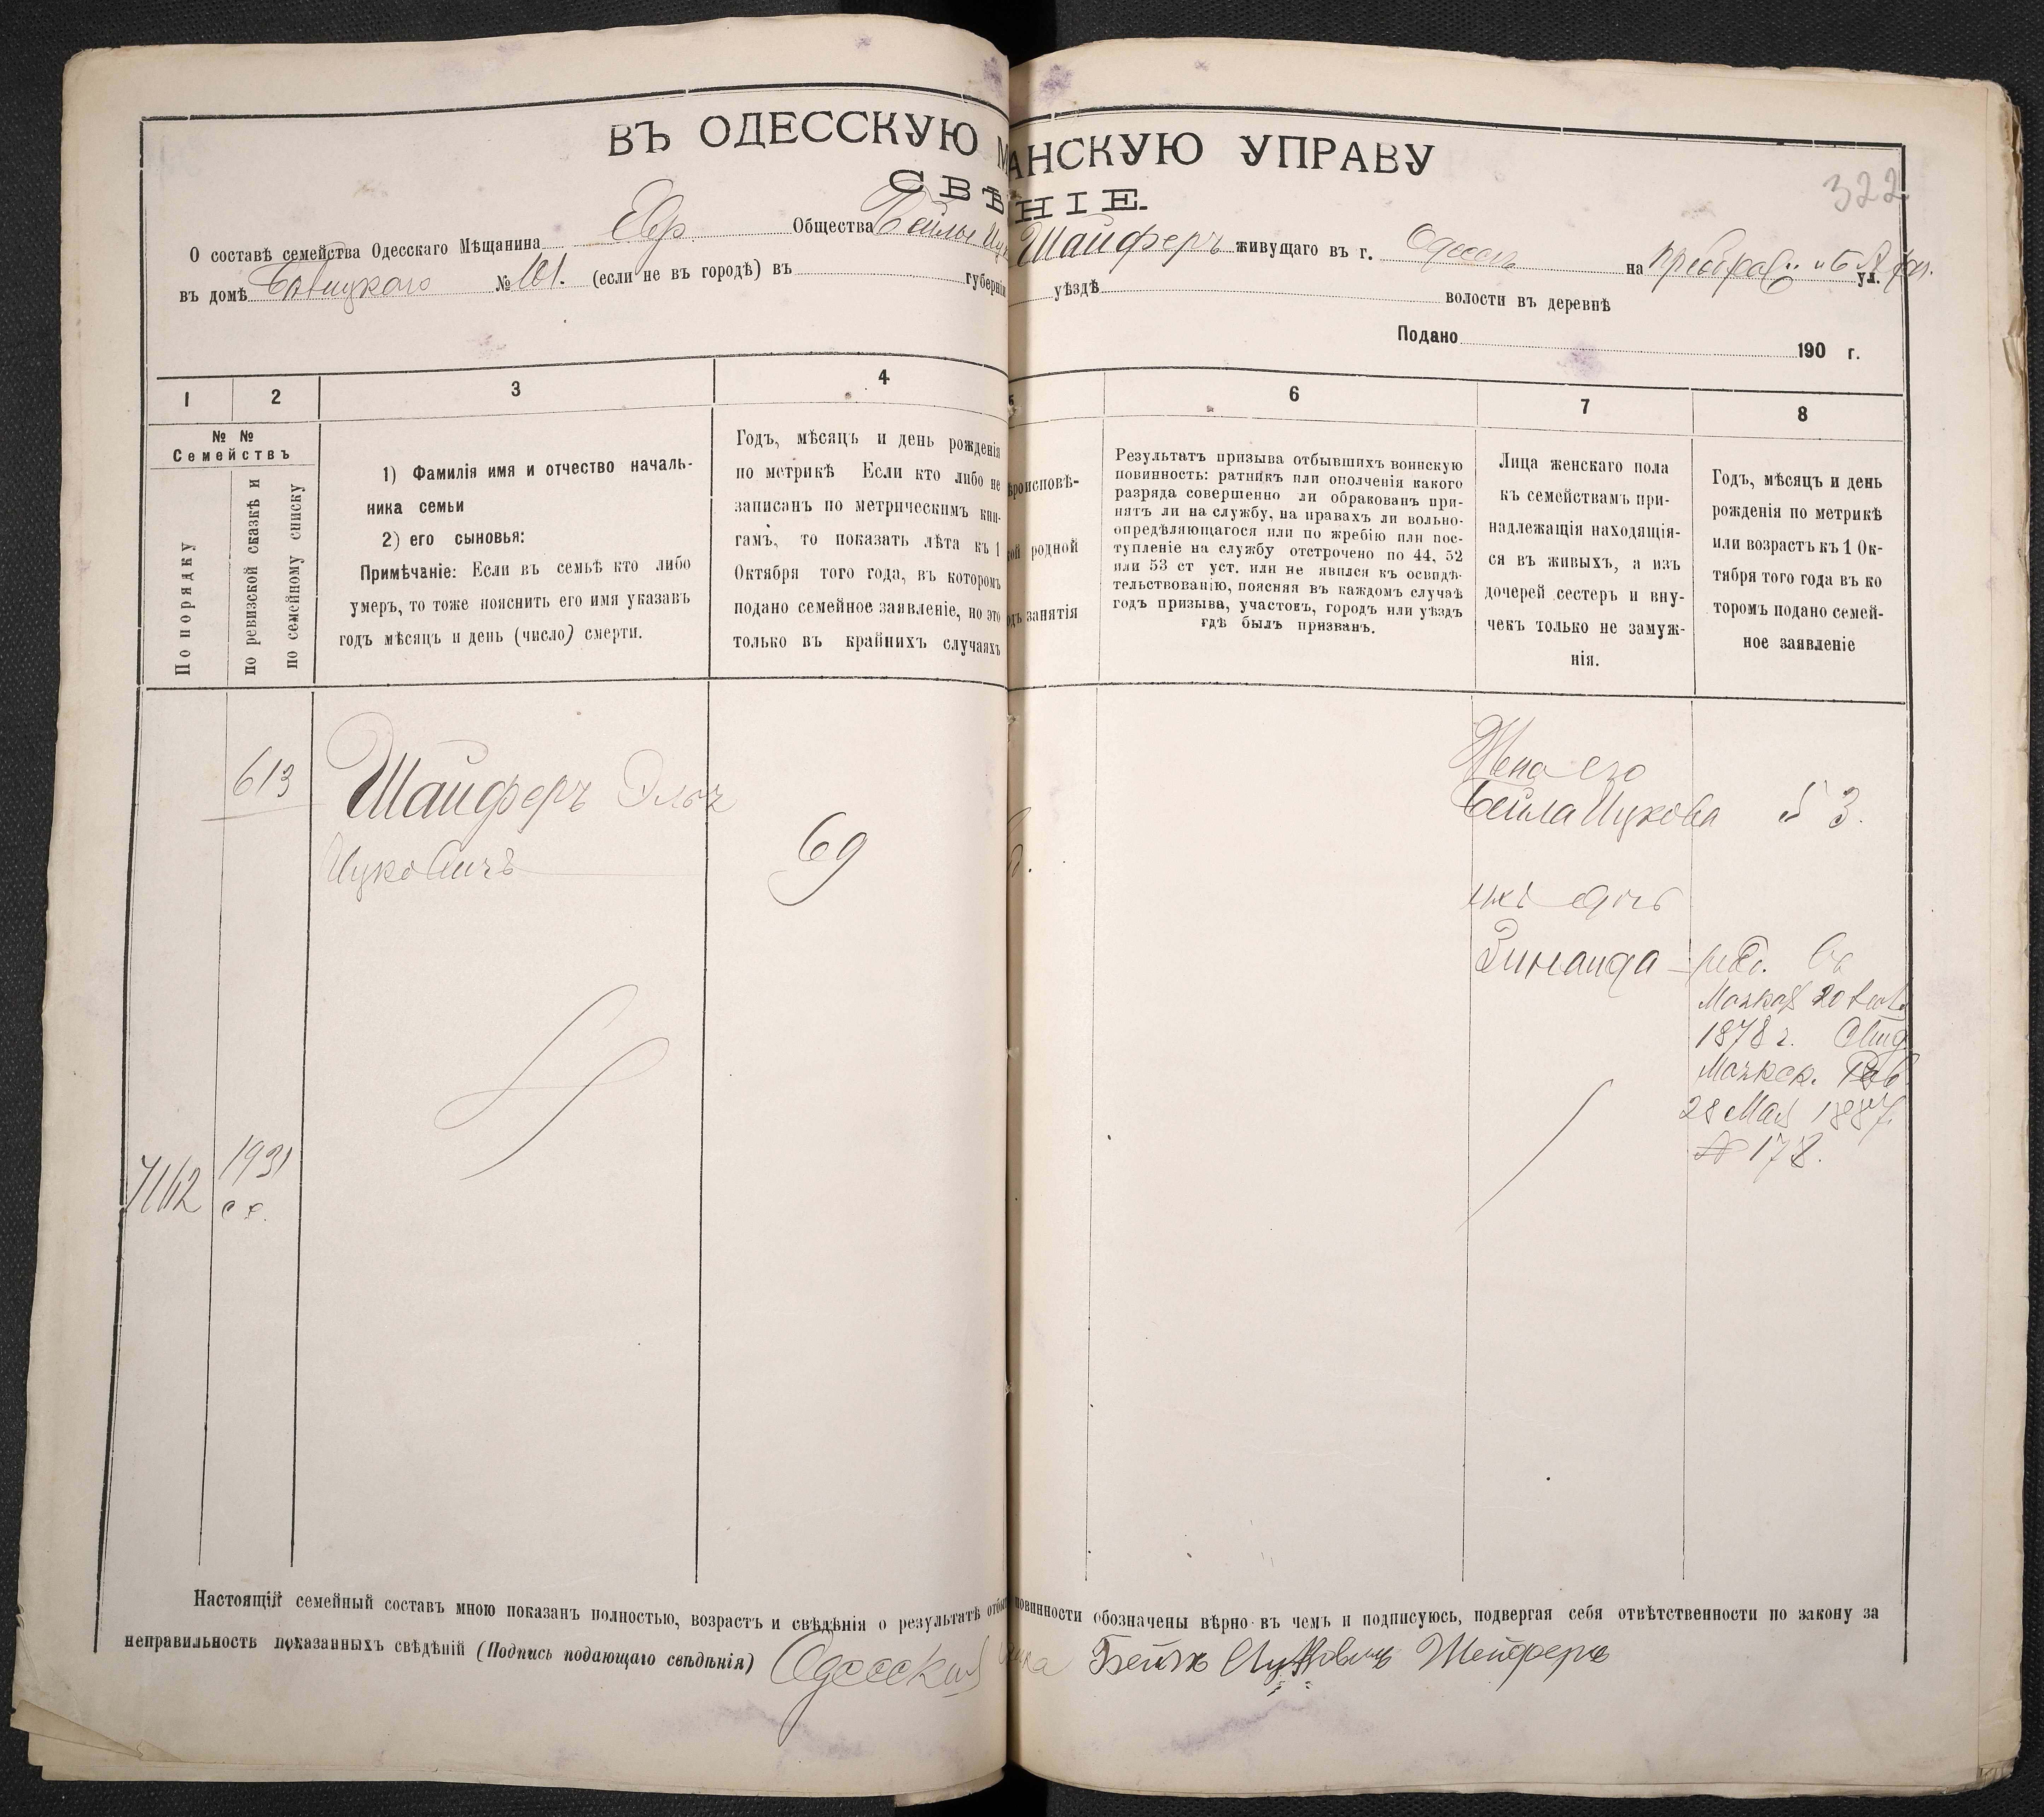 ВЪ ОДЕССКУЮ М АНСКУЮ УПРАВУ
СВѢ НІЕ.
322
О составѣ семейства Одесскаго Мѣщанина Евр. Общества Бейлы Шайферъ живущаго въ г. Одессѣ на ул.
въ домѣ № 101. (если не въ городѣ) въ губерніи уѣздѣ волости въ деревнѣ
Подано 190 г.
1 2 3 4 5 6 7 8
№ №
Семействъ
По порядку
по ревизской сказкѣ и
по семейному списку
1) Фамилія имя и отчество началь-
ника семьи
2) его сыновья:
Примѣчаніе: Если въ семьѣ кто либо
умеръ, то тоже пояснить его имя указавъ
годъ мѣсяцъ и день (число) смерти.
Годъ, мѣсяцъ и день рожденія
по метрикѣ Если кто либо не
записанъ по метрическимъ кни-
гамъ, то показать лѣта къ 1
Октября того года, въ которомъ
подано семейное заявленіе, но это
только въ крайнихъ случаяхъ
ѣроисповѣ-
родной
занятія
Результатъ призыва отбывшихъ воинскую
повинность: ратникъ или ополченія какого
разряда совершенно ли обракованъ при-
нятъ ли на службу, на правахъ ли вольно-
опредѣляющагося или по жребію или пос-
тупленіе на службу отстрочено по 44, 52
или 53 ст уст. или не явился къ освидѣ-
тельствованію, поясняя въ каждомъ случаѣ
годъ призыва, участовъ, городъ или уѣздъ
гдѣ былъ призванъ.
Лица женскаго пола
къ семействамъ при-
надлежащія находящія-
ся въ живыхъ, а изъ
дочерей сестеръ и вну-
чекъ только не замуж-
нія.
Годъ, мѣсяцъ и день
рожденія по метрикѣ
или возрастъ къ 1 Ок-
тября того года въ ко
торомъ подано семей-
ное заявленіе
613
Шайферъ
Ицковичъ
69
Жена его
Бейла Ицкова
53.
ихъ дочь
Зинаида
1878 г.
28 Мая 1887.
№ 178.
7162
1931
с с.
Настоящій семейный составъ мною показанъ полностью, возрастъ и свѣдѣнія о результатѣ отбы повинности обозначены вѣрно въ чемъ и подписуюсь, подвергая себя отвѣтственности по закону за
неправильность показанныхъ свѣдѣній (Подпись подающаго свѣдѣнія) Шейферъ